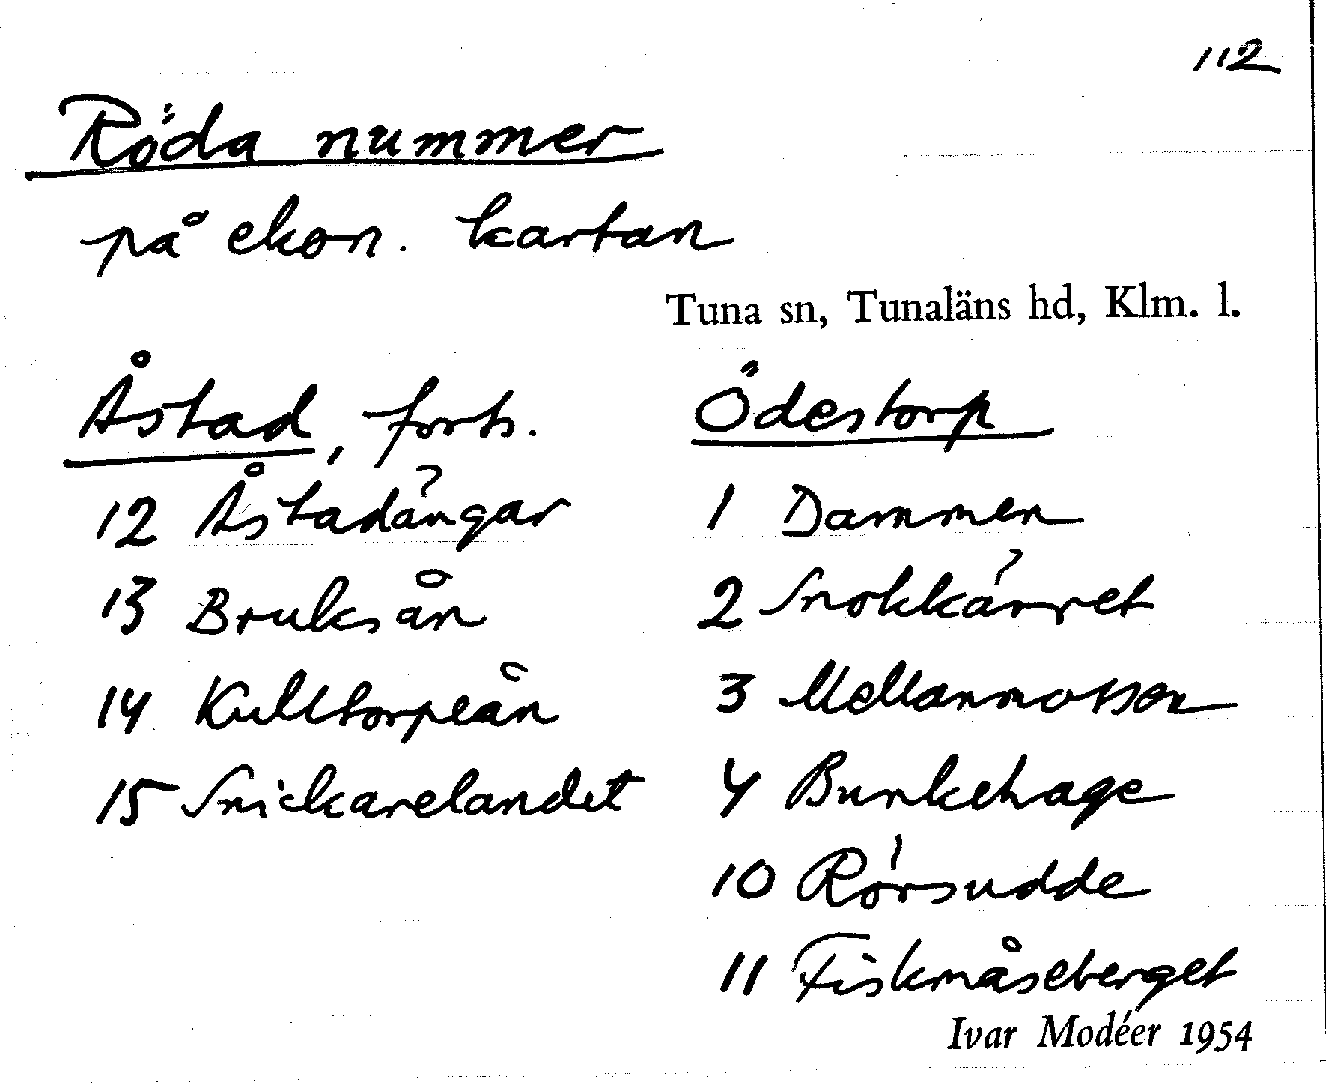 112
Röda nummer
på ekon. kartan
Tuna sn, Tunaläns hd, Klm. l.
Åstad, forts.
12 Åstadängar
13 Bruksån
14 Kulltorpeån
15 Snickarelandet
Ödestorp
1 Dammen
2 Snokkärret
3 Mellanmossen
4 Bunkehage
10 Rörsudde
11 Fiskmåseberget
Ivar Modéer 1954